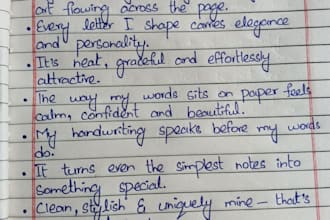 art flowing across the page.
• Every letter I shape carries elegance
and personality.
• It's neat, graceful and effortlessly
attractive.
• The way my words sits on paper feels
calm, confident and beautiful.
• My handwriting speaks before my words
do.
• It turns even the simplest notes into
something special.
• Clean, stylish & uniquely mine – that's